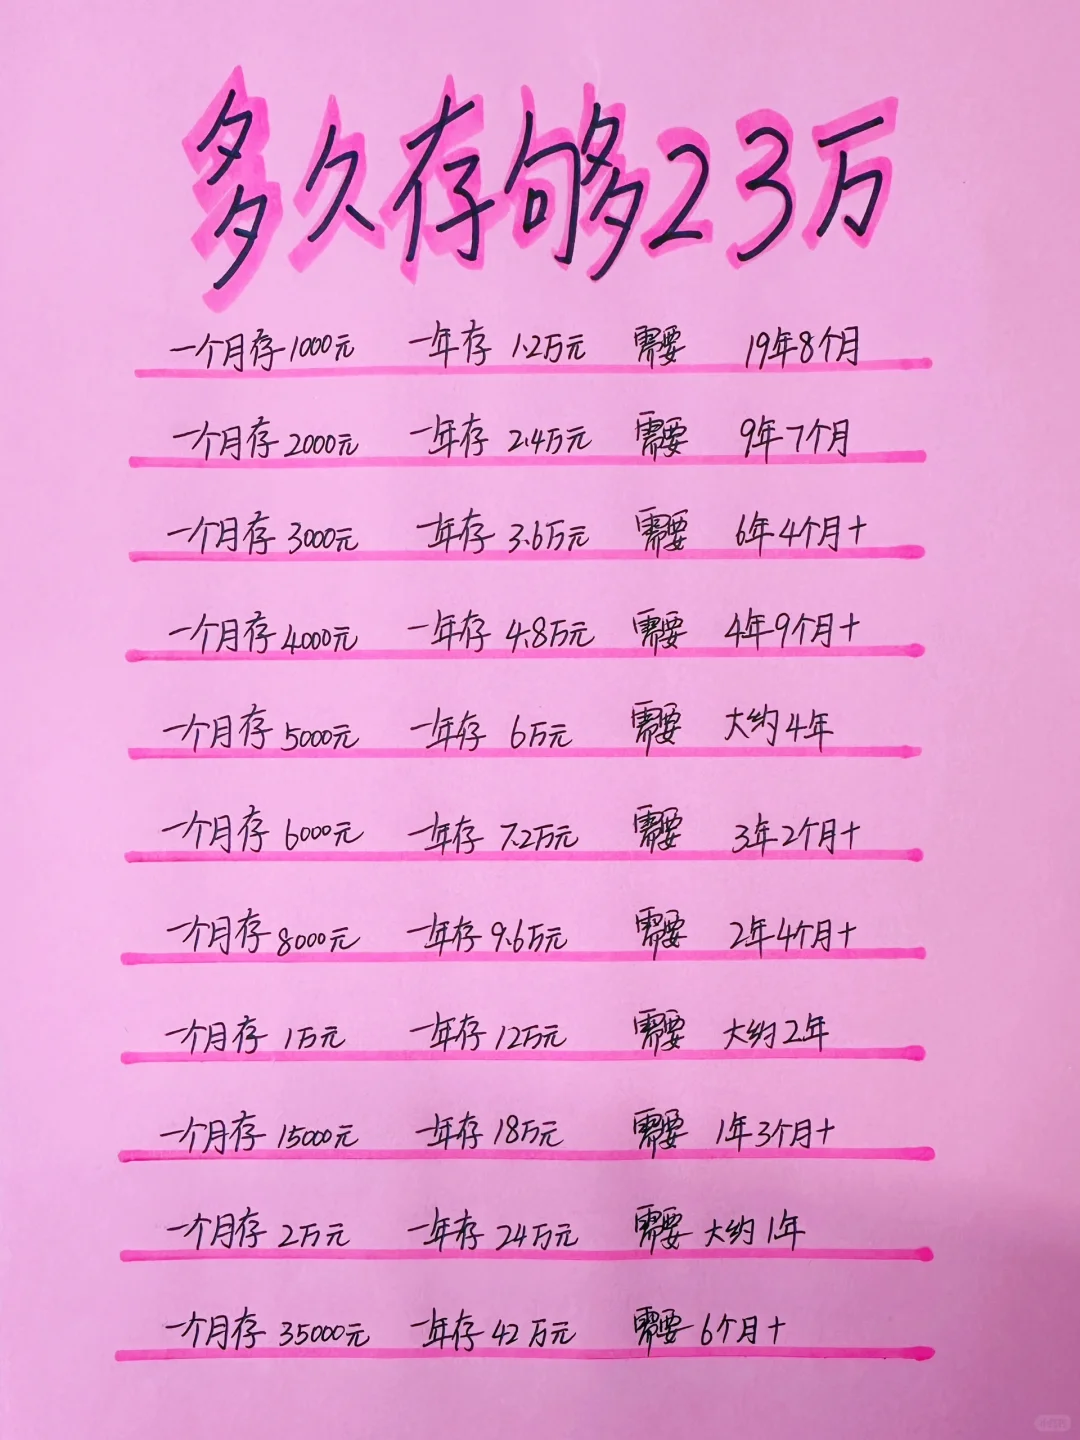 多久存够23万
一个月存1000元 一年存1.2万元 需要 19年8个月
一个月存2000元 一年存2.4万元 需要 9年7个月
一个月存3000元 一年存3.6万元 需要 6年4个月+
一个月存4000元 一年存4.8万元 需要 4年9个月+
一个月存5000元 一年存6万元 需要 大约4年
一个月存6000元 一年存7.2万元 需要 3年2个月+
一个月存8000元 一年存9.6万元 需要 2年4个月+
一个月存1万元 一年存12万元 需要 大约2年
一个月存15000元 一年存18万元 需要 1年3个月+
一个月存2万元 一年存24万元 需要 大约1年
一个月存35000元 一年存42万元 需要 6个月+